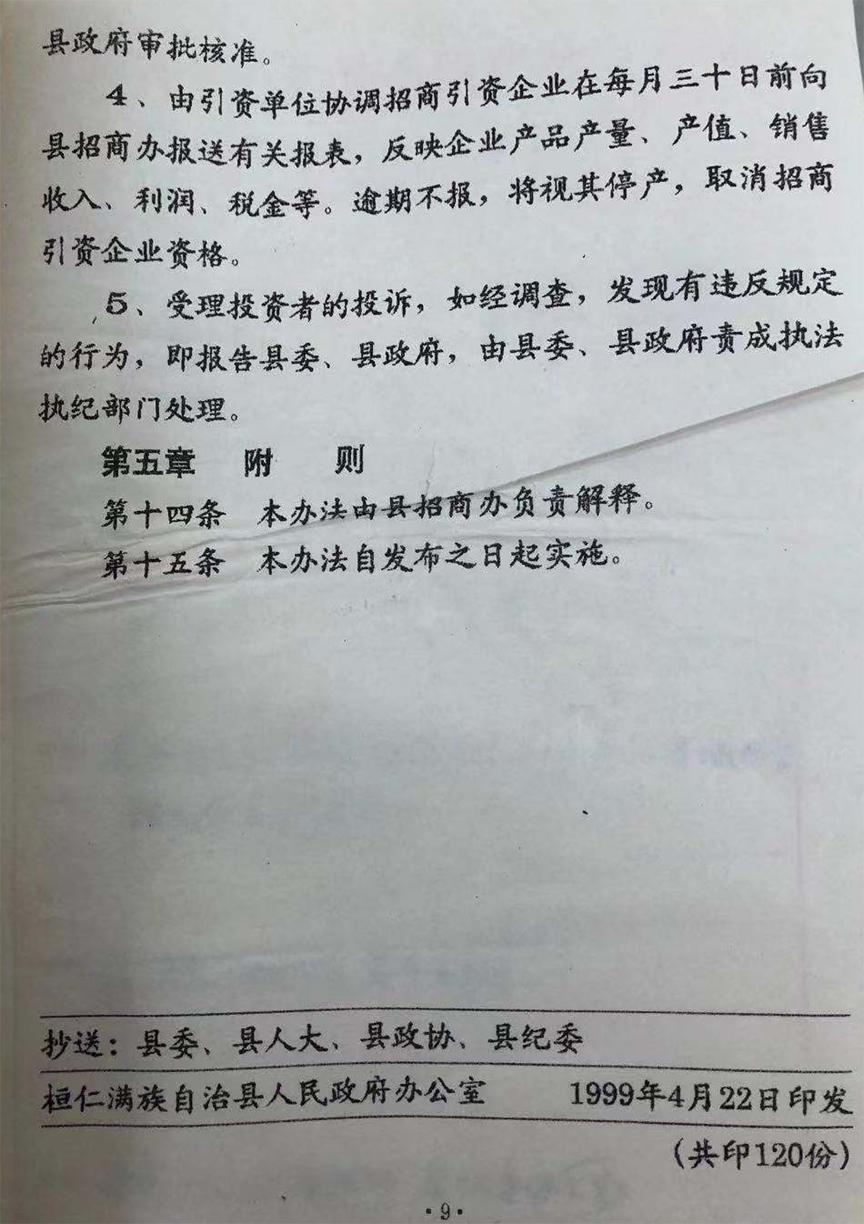 县政府审批核准。
4、由引资单位协调招商引资企业在每月三十日前向
县招商办报送有关报表，反映企业产品产量、产值、销售
收入、利润、税金等。逾期不报，将视其停产，取消招商
引资企业资格。
5、受理投资者的投诉，如经调查，发现有违反规定
的行为，即报告县委、县政府，由县委、县政府责成执法
执纪部门处理。
第五章 附 则
第十四条 本办法由县招商办负责解释。
第十五条 本办法自发布之日起实施。
抄送：县委、县人大、县政协、县纪委
桓仁满族自治县人民政府办公室 1999年4月22日印发
（共印120份）
·9·